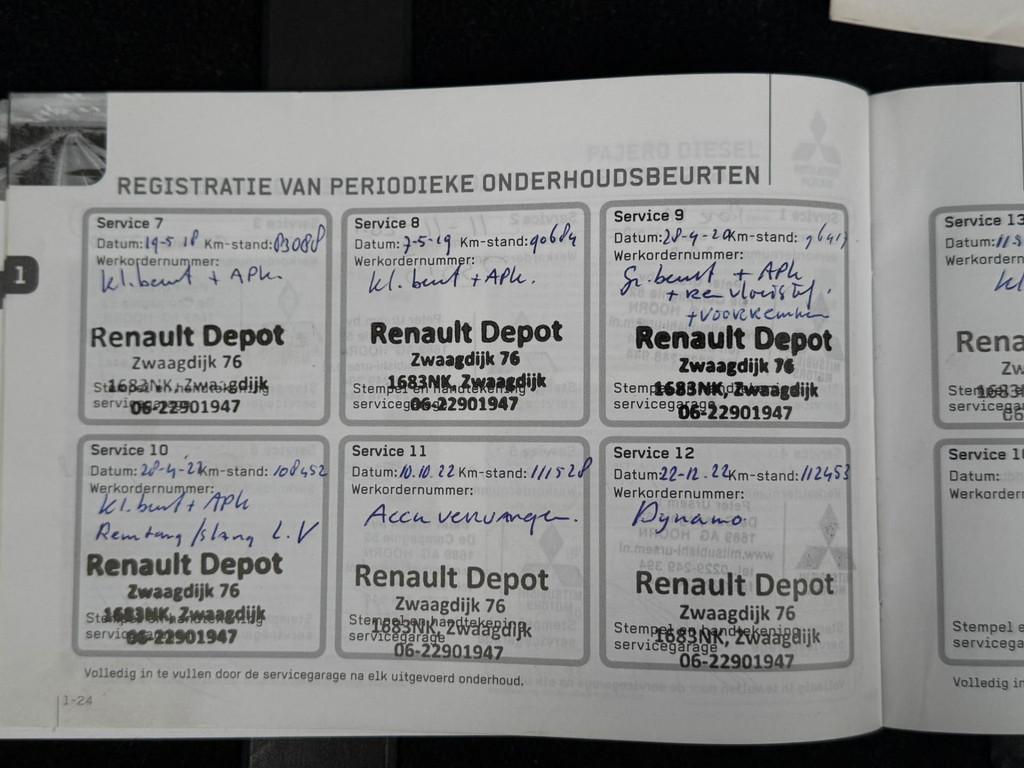 REGISTRATIE VAN PERIODIEKE ONDERHOUDSBEURTEN
1
Service 7
Datum: 19-5 18 Km-stand: 83088
Werkordernummer:
kl. beurt + APK.
Renault Depot
Zwaagdijk 76
1683NK, Zwaagdijk
Stempel en handtekening
servicegarage
06-22901947
Service 8
Datum: 7-5-19 Km-stand: 90684
Werkordernummer:
kl. beurt + APK.
Renault Depot
Zwaagdijk 76
1683NK, Zwaagdijk
Stempel en handtekening
servicegarage
06-22901947
Service 9
Datum: 28-4-20 Km-stand: 96417
Werkordernummer:
Gr. beurt + APK
+ rem vloeistof.
+ voorremmen
Renault Depot
Zwaagdijk 76
1683NK, Zwaagdijk
Stempel en handtekening
servicegarage
06-22901947
Service 10
Datum: 28-4-22 Km-stand: 108452
Werkordernummer:
kl. beurt + APK
Remtang/slang L.V
Renault Depot
Zwaagdijk 76
1683NK, Zwaagdijk
Stempel en handtekening
servicegarage
06-22901947
Service 11
Datum: 10.10.22 Km-stand: 111528
Werkordernummer:
Accu vervangen.
Renault Depot
Zwaagdijk 76
Stempel en handtekening
1683NK, Zwaagdijk
servicegarage
06-22901947
Service 12
Datum: 22-12.22 Km-stand: 112453
Werkordernummer:
Dynamo
Renault Depot
Zwaagdijk 76
Stempel en handtekening
1683NK, Zwaagdijk
servicegarage
06-22901947
Volledig in te vullen door de servicegarage na elk uitgevoerd onderhoud.
1-24
Service 13
Datum:
Werkordern
kl
Rena
Zw
Stempel e
1683
servicega
06
Service 1
Datum:
Werkordern
Stempel e
servicega
Volledig in